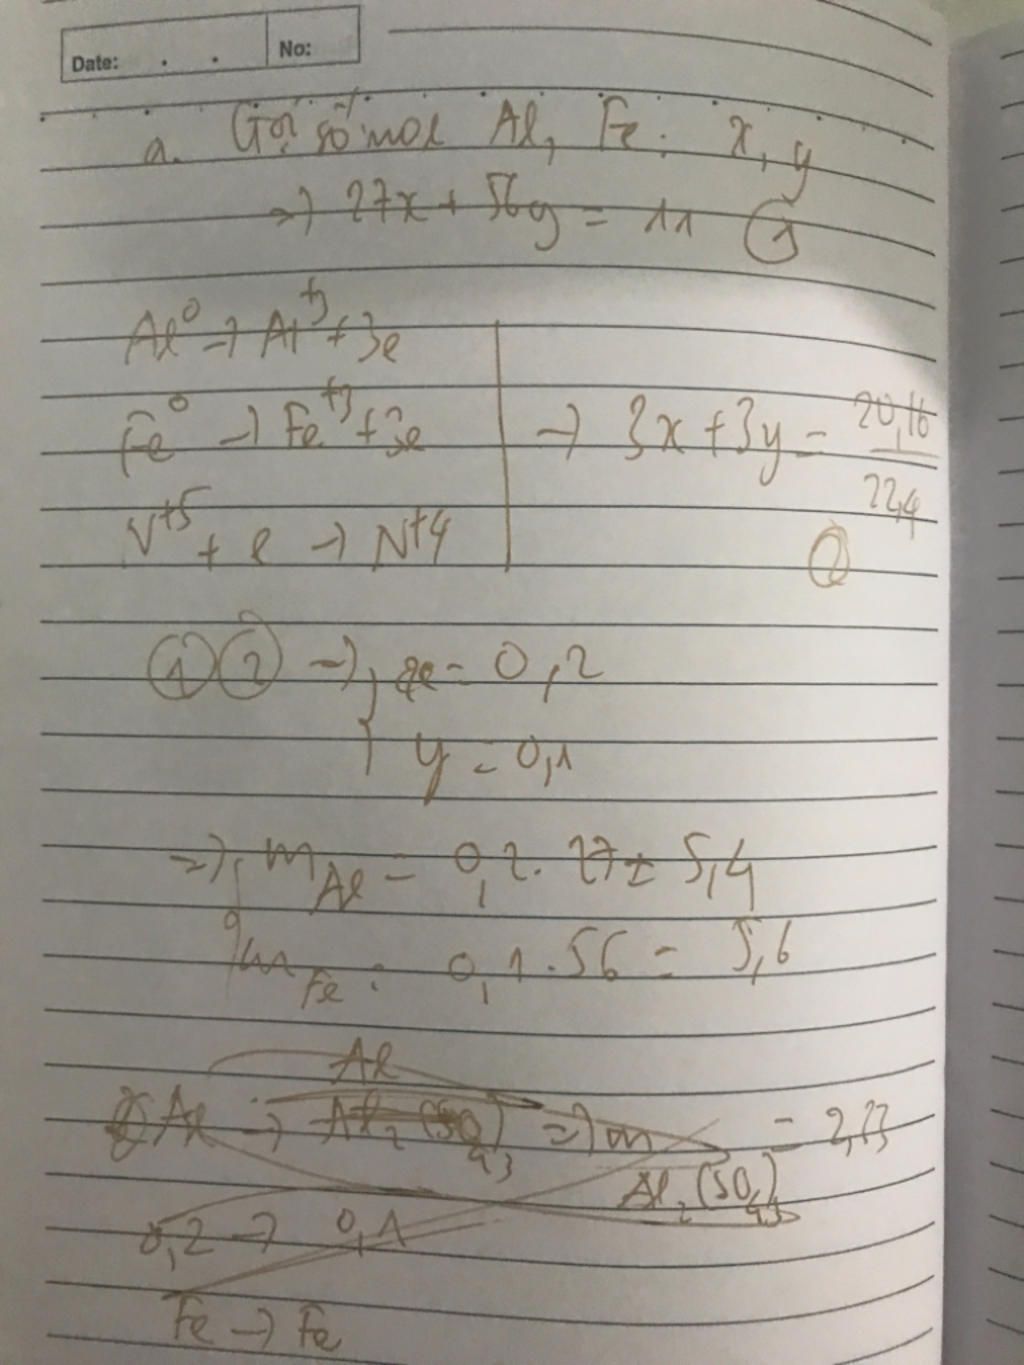 Date: . . No:
a. Gọi số mol Al, Fe: x, y
=> 27x + 56y = 11 (1)
Al⁰ → Al⁺³ + 3e
Fe⁰ → Fe⁺³ + 3e → 3x + 3y = 20,16 / 22,4
N⁺⁵ + e → N⁺⁴ (2)
(1)(2) → { x = 0,2
y = 0,1
=> { m Al = 0,2 . 27 = 5,4
m Fe : 0,1 . 56 = 5,6
Al
Al → Al₂(SO₄)₃ => m Al₂(SO₄)₃ =
0,2 → 0,1
Fe → Fe